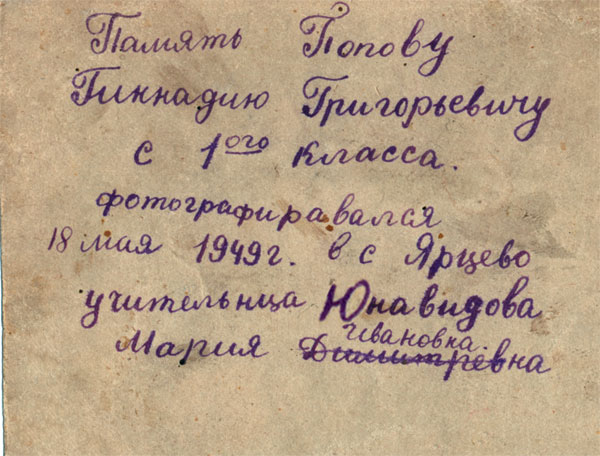 Память Попову
Гиннадию Григорьевичу
с 1ого класса.
фотографиравался
18 мая 1949г. в с Ярцево
учительница Юнавидова
Ивановна.
Мария Димитревна